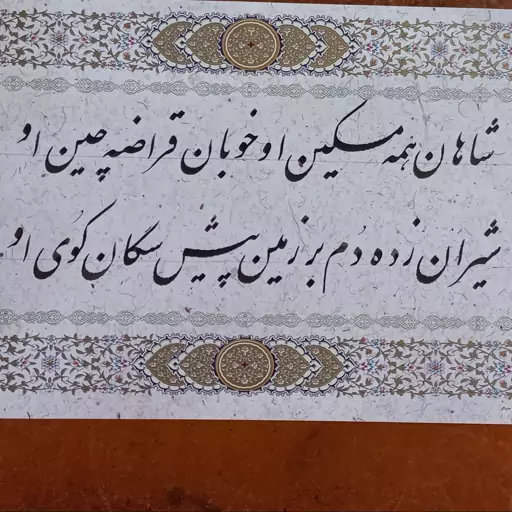 شاهان همه مسکین او خوبان قراضه چین او
شیران زده دُم بر زمین پیش سگان کوُی او